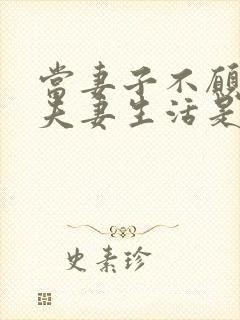 當妻子不願
夫妻生活是
史素珍